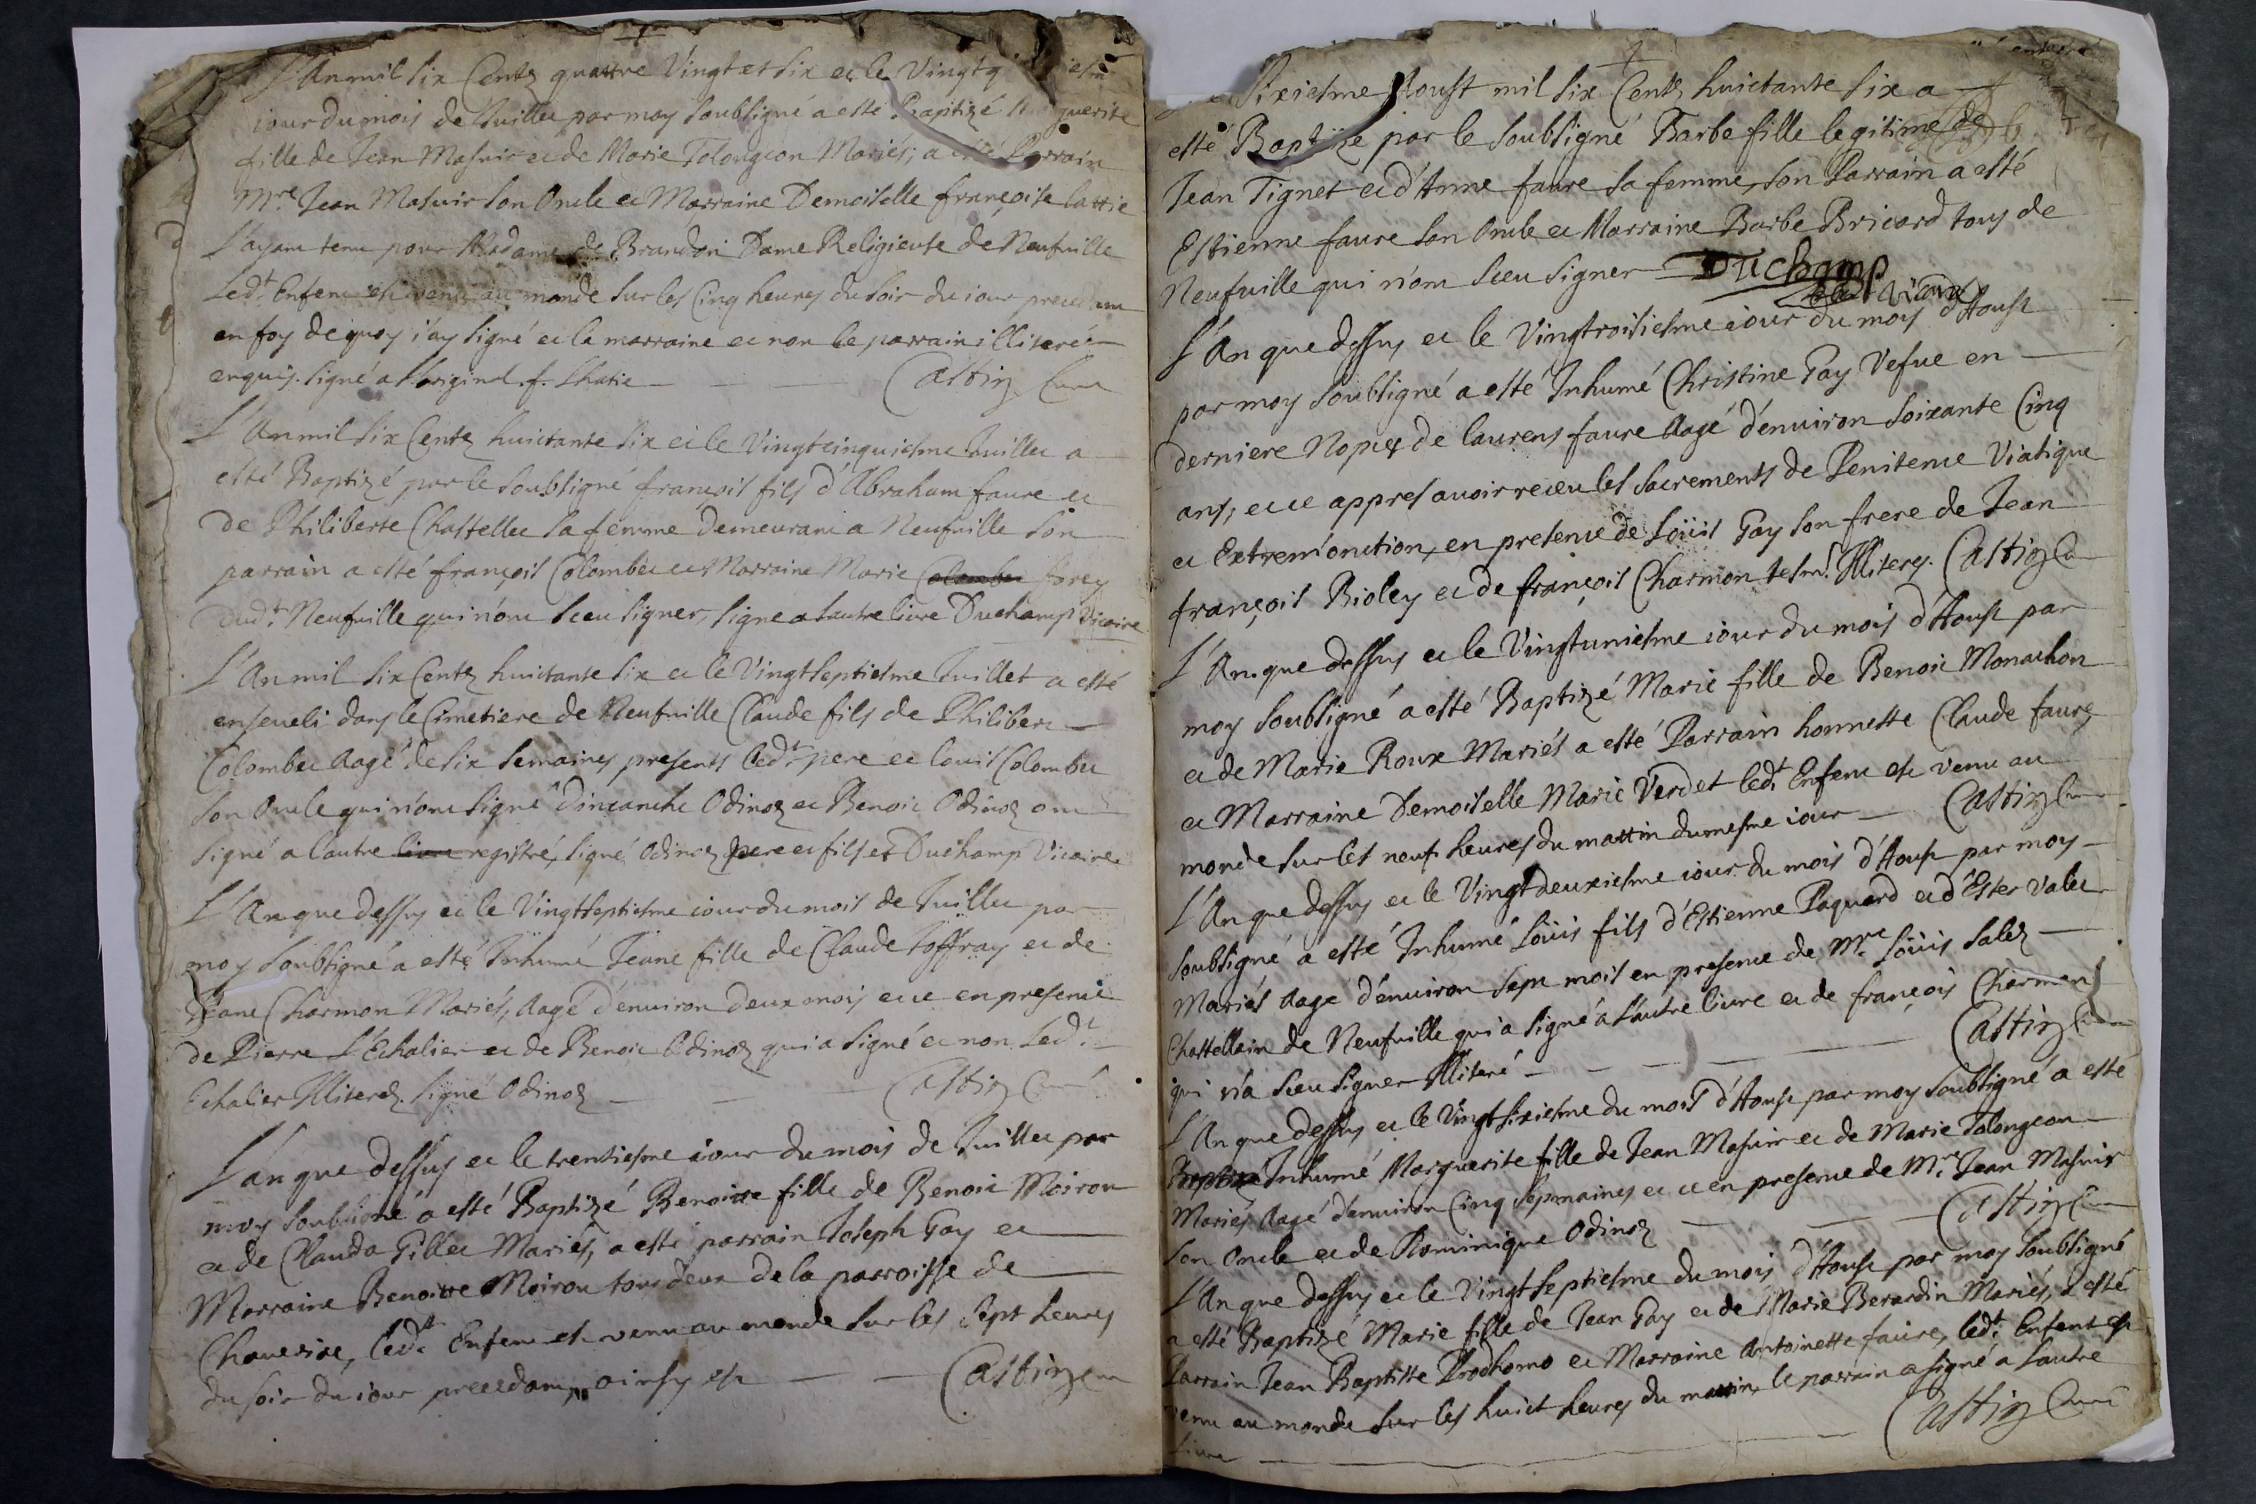 L'An mil six Centz quattre Vingt et six et le Vingt
iour du mois de Juillet par moy soubsigné a esté Baptizé
fille de Jean Masuir et de Marie Tolongeon Mariés, a esté Parrain
Mre Jean Masuir son Oncle et Marraine Demoiselle françoise
L'ayant tenu pour Madame de Brandon Dame Religieuse de Neufuille
Ledt. Enfent est venu au monde sur les Cinq heures du soir du iour precedant
en foy de quoy i'ay signé et la marraine et non le parrain illiteré
enquis. signé a l'original. f. Chatie Castin Curé
L'An mil six Centz huictante six et le Vingtcinquiesme Juillet a
esté Baptizé par le soubsigné françois fils d'Abraham faure et
de Philiberte Chastellet sa femme Demeurant a Neufuille son
parrain a esté françois Colombet et Marraine Marie Colombet forey
dudt. Neufuille qui n'ont sceu signer, signe a lautre livre Duchamp Vicaire
L'An mil six Centz huictante six et le Vingtseptiesme Juillet a esté
enseueli dans le Cimetiere de Neufuille Claude fils de Philibert
Colombet aagé de six semaines presents ledt. pere et louis Colombet
son Oncle qui n'ont signé Odinoz et Benoit Odinoz ont
signé a lautre livre registré, signé Odinoz pere et fils et Duchamp Vicaire
L'An que dessus et le Vingtseptiesme iour du mois de Juillet par
moy soubsigné a esté Inhumé Jeane fille de Claude Joffray et de
Jeane Charmon Mariés, aagé d'enuiron deux mois et ce en presence
de Pierre L'Echalier et de Benoit Odinoz qui a signé et non Ledt.
Echalier Illiterez. signé Odinoz Castin Curé
L'an que dessus et le trentiesme iour du mois de Juillet par
moy soubsigné a esté Baptizé Benoitte fille de Benoit Moiron
et de Clauda Gillet Mariés, a esté parrain Joseph Gay et
Marraine Benoitte Moirou tous deux de la parroisse de
Chaueirie, ledt. Enfent est venu au monde sur les Sept heures
du soir du iour precedant, ainsy est Castin Curé
Sixiesme Aoust mil six Centz huictante six a
esté Baptizé par le soubsigné Barbe fille legitime de
Jean Tignet et d'Anne faure sa femme, son Parrain a esté
Estienne faure son Oncle et Marraine Barbe Bricard tous de
Neufuille qui n'ont sceu signer Duchamp
Vicaire
L'An que dessus et le Vingtroisiesme iour du mois d'Aoust
par moy soubsigné a esté Inhumé Christine Gay Vefue en
derniere Nopces de laurens faure aagé d'enuiron soixante Cinq
ans, et ce appres auoir receu les sacrements de Penitence Viatique
et Extrem'onction, en presence de Loüis Gay son frere de Jean
françois Rioley et de françois Charmon tesmt. Illiterez. Castin Curé
L'An que dessus et le Vingtuniesme iour du mois d'Aoust par
moy soubsigné a esté Baptizé Marie fille de Benoit Monachon
et de Marie Roux Mariés a esté Parrain honneste Claude faure
et Marraine Demoiselle Marie Verdet ledt. Enfent est venu au
monde sur les neuf heures du mattin du mesme iour Castin Curé
L'An que dessus et le Vingtdeuxiesme iour du mois d'Aoust par moy
soubsigné a esté Inhumé Loüis fils d'Estienne Paquard et d'Ester Valet
Mariés aagé d'enuiron sept mois en presence de Mre Loüis Salez
Chastellain de Neufuille qui a signé a Lautre livre et de françois Charmon
qui n'a sceu signer Illiteré Castin Curé
L'An que dessus et le Vingtsixiesme du mois d'Aoust par moy soubsigné a esté
Baptizé Inhumé Marguerite fille de Jean Masuir et de Marie Tolongeon
Mariés aagé d'enuiron Cinq sepmaines et ce en presence de Mre Jean Masuir
son Oncle et de Dominique Odinoz Castin Curé
L'An que dessus et le Vingtseptiesme du mois d'Aoust par moy soubsigné
a esté Baptizé Marie fille de Jean Gay et de Marie Berardin Mariés, a esté
Parrain Jean Baptiste Prodhomo et Marraine Antoinette faure, ledt. Enfent est
venu au monde sur les huict heures du mattin, le parrain a signé a Lautre
livre Castin Curé